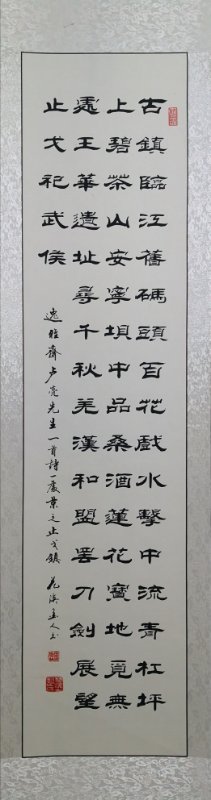 古鎮臨江舊碼頭百花戲水擊中流青杠坪
上碧茶山安寧垻中品桑酒蓮花寶地覓無
憂王華遺址尋千秋羌漢和盟罢刀劍展望
止戈祀武侯
逸雅齋卢亮先生一首詩一處景之止戈鎮 花溪主人书